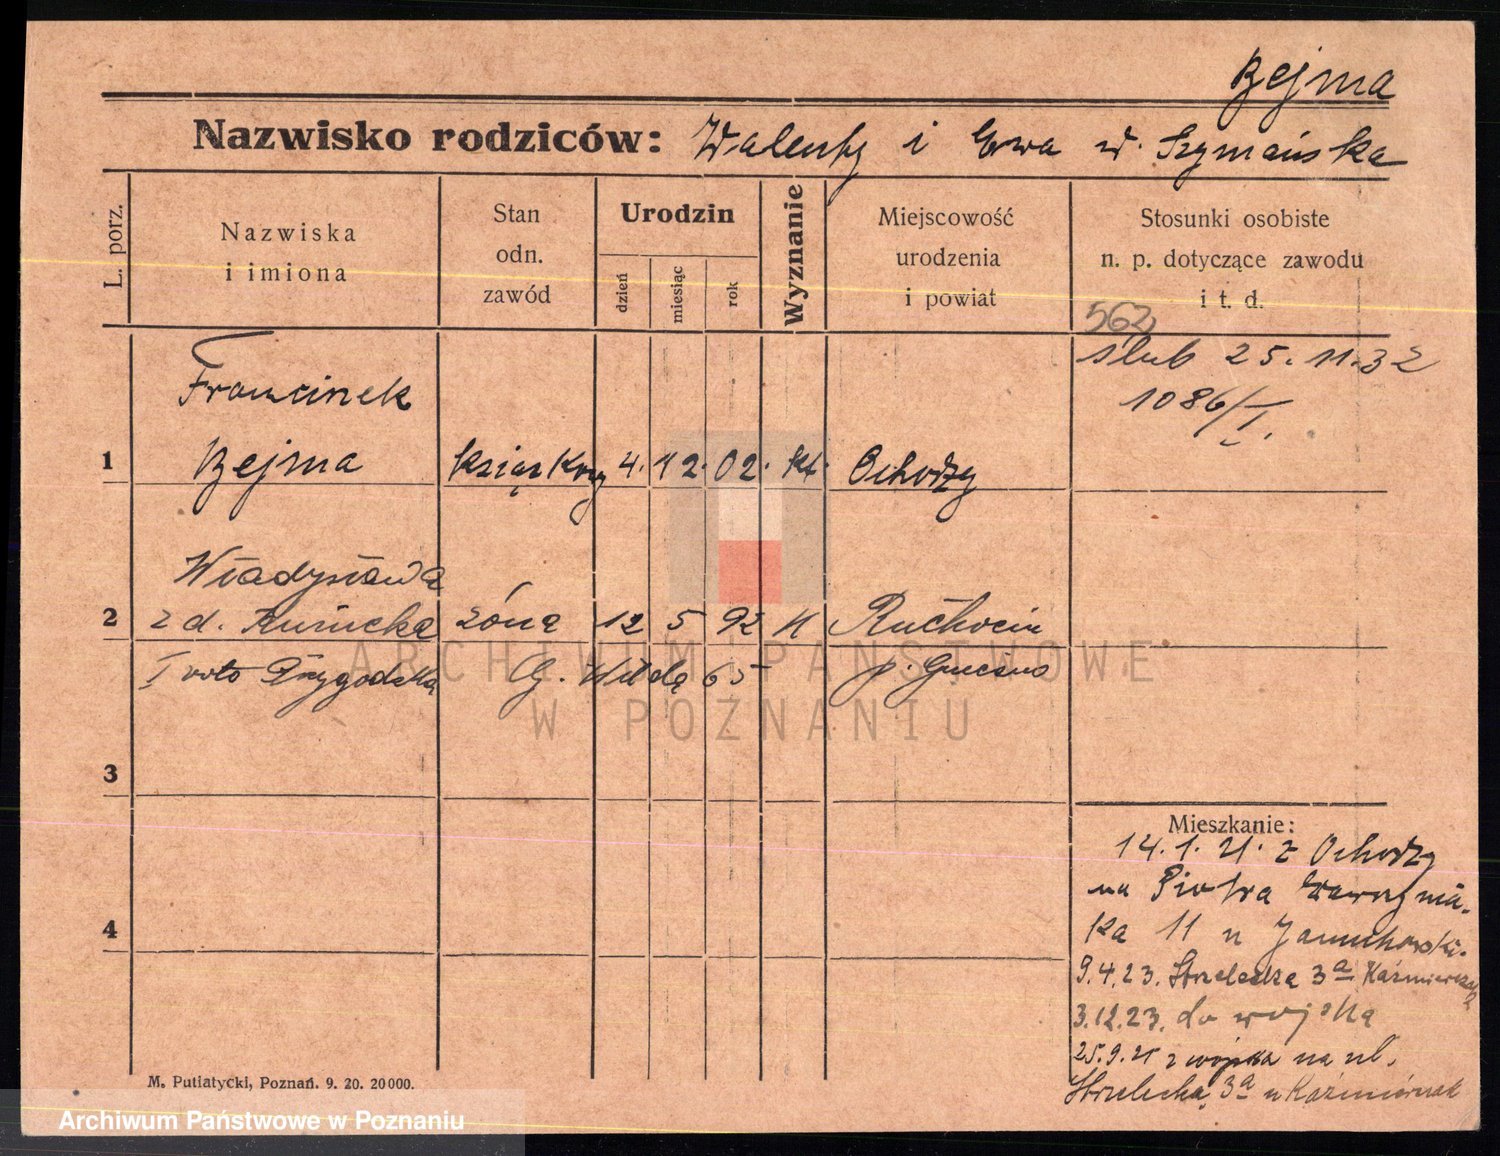 Bejma
Nazwisko rodziców: Walenty i Ewa z d. Szymańska
L. porz.
Nazwiska
i imiona
Stan
odn.
zawód
Urodzin
dzień
miesiąc
rok
Wyznanie
Miejscowość
urodzenia
i powiat
Stosunki osobiste
n. p. dotyczące zawodu
i t. d.
562
ślub 25.11.32
1086/I.
Franciszek
1 Bejma książkowy 4. 12. 02. kt. Ochodzy
Władysława
2 z d. żona 12 5 92 " Ruchocin
I voto Przygodzka G. Wilda 65 p. Gniezno
3
4
Mieszkanie:
14.1.21. z Ochodzy
na Piotra Wawrzynia-
ka 11 u Januchowski.
9.4.23. Strzelecka 3a Kaźmierczak
3.12.23. do wojska
25.9.25 z wojska na ul.
Strzelecką 3a u Kaźmierczak
M. Putiatycki, Poznań. 9. 20. 20000.
ARCHIWUM PAŃSTWOWE
W POZNANIU
Archiwum Państwowe w Poznaniu